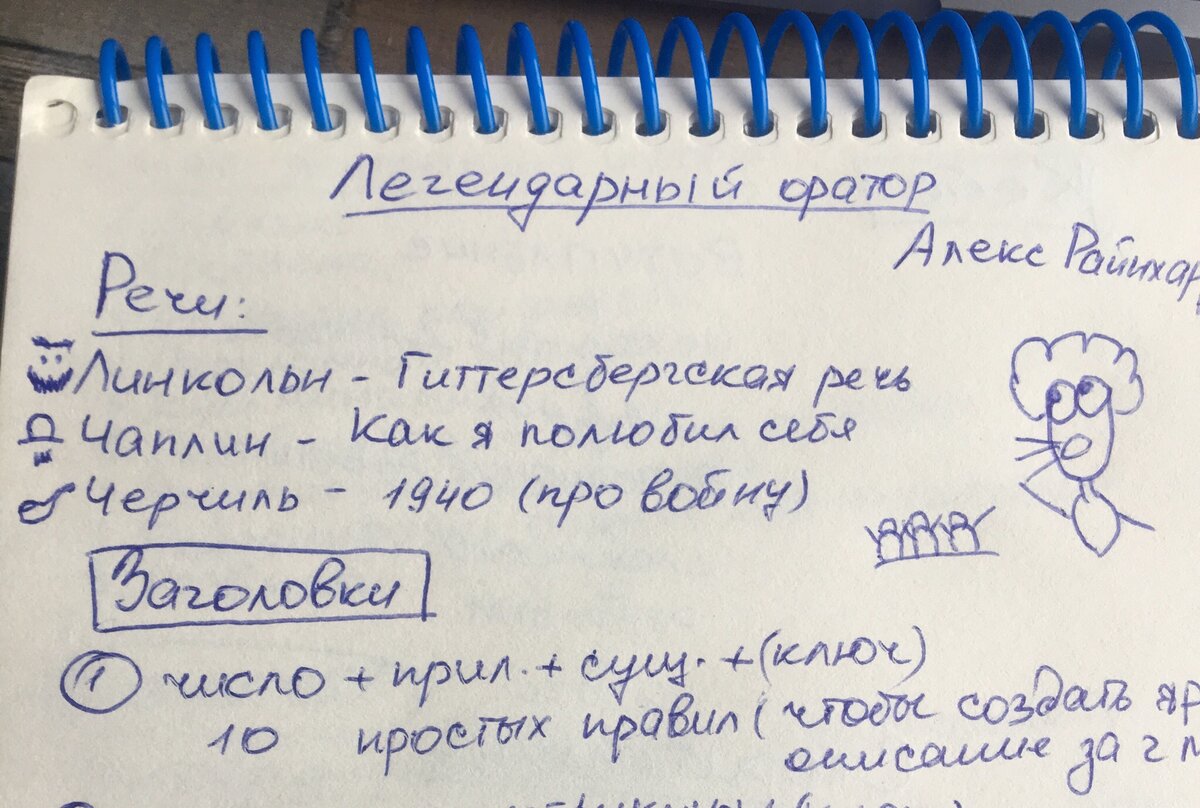 Легендарный оратор
Алекс Райнхар
Речи:
Линкольн - Гиттерсбергская речь
Чаплин - Как я полюбил себя
Черчиль - 1940 (про войну)
Заголовки
1 число + прил. + сущ. + (ключ)
10 простых правил (чтобы создать яр
описание за 2 м